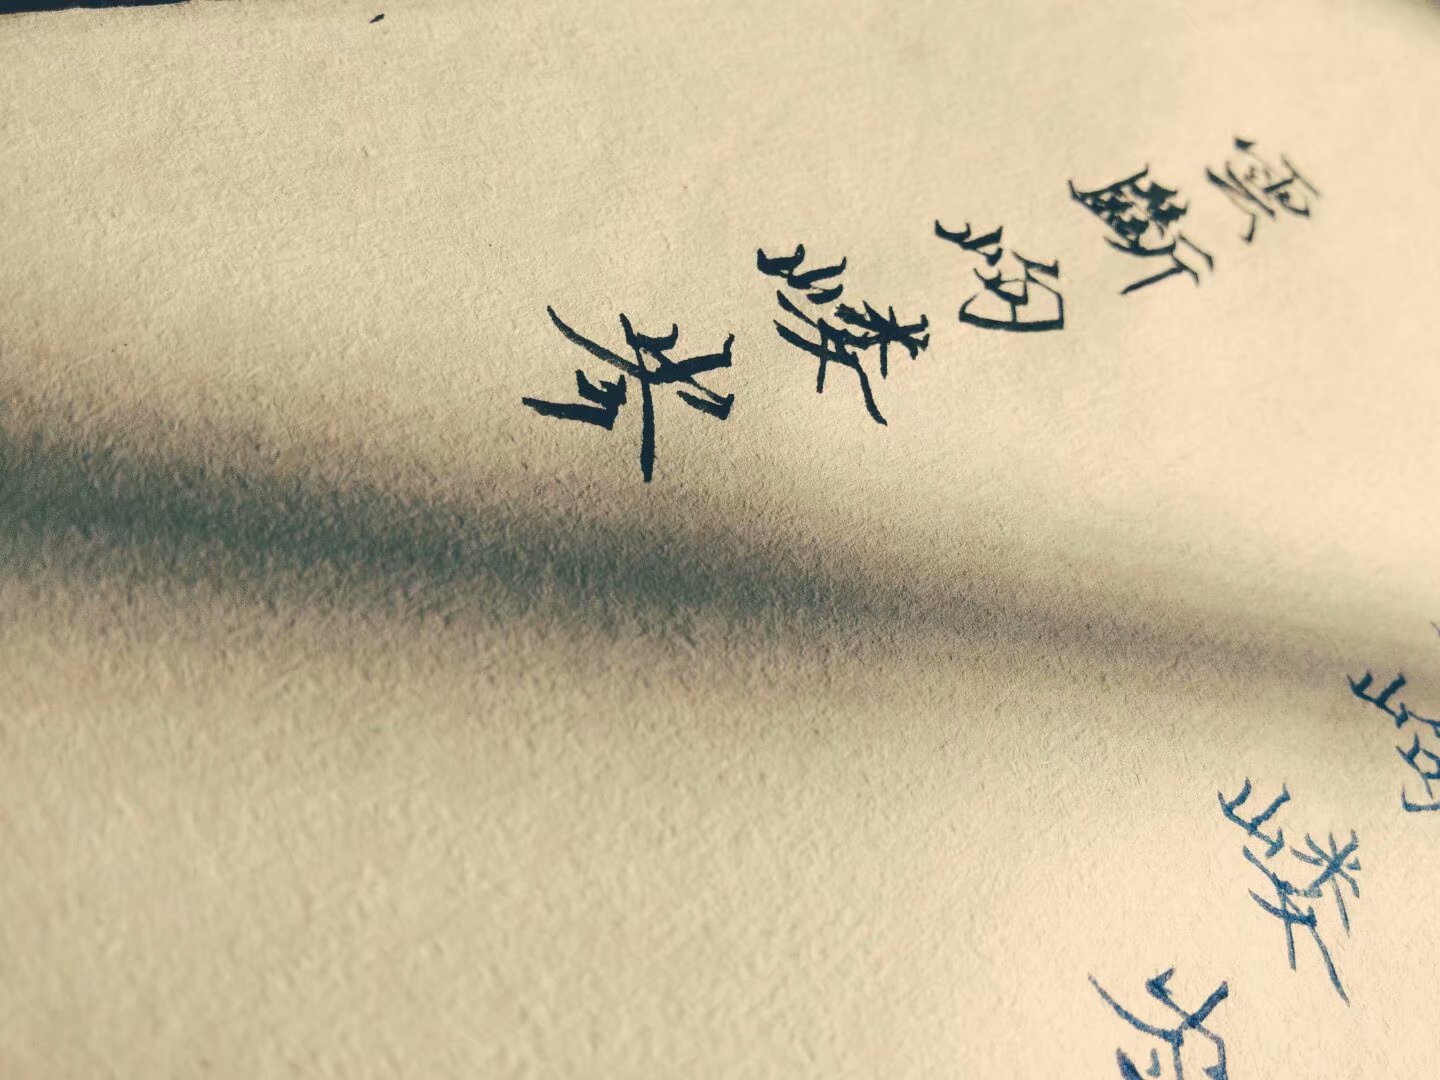 雲斷岣嶁岑
嶁